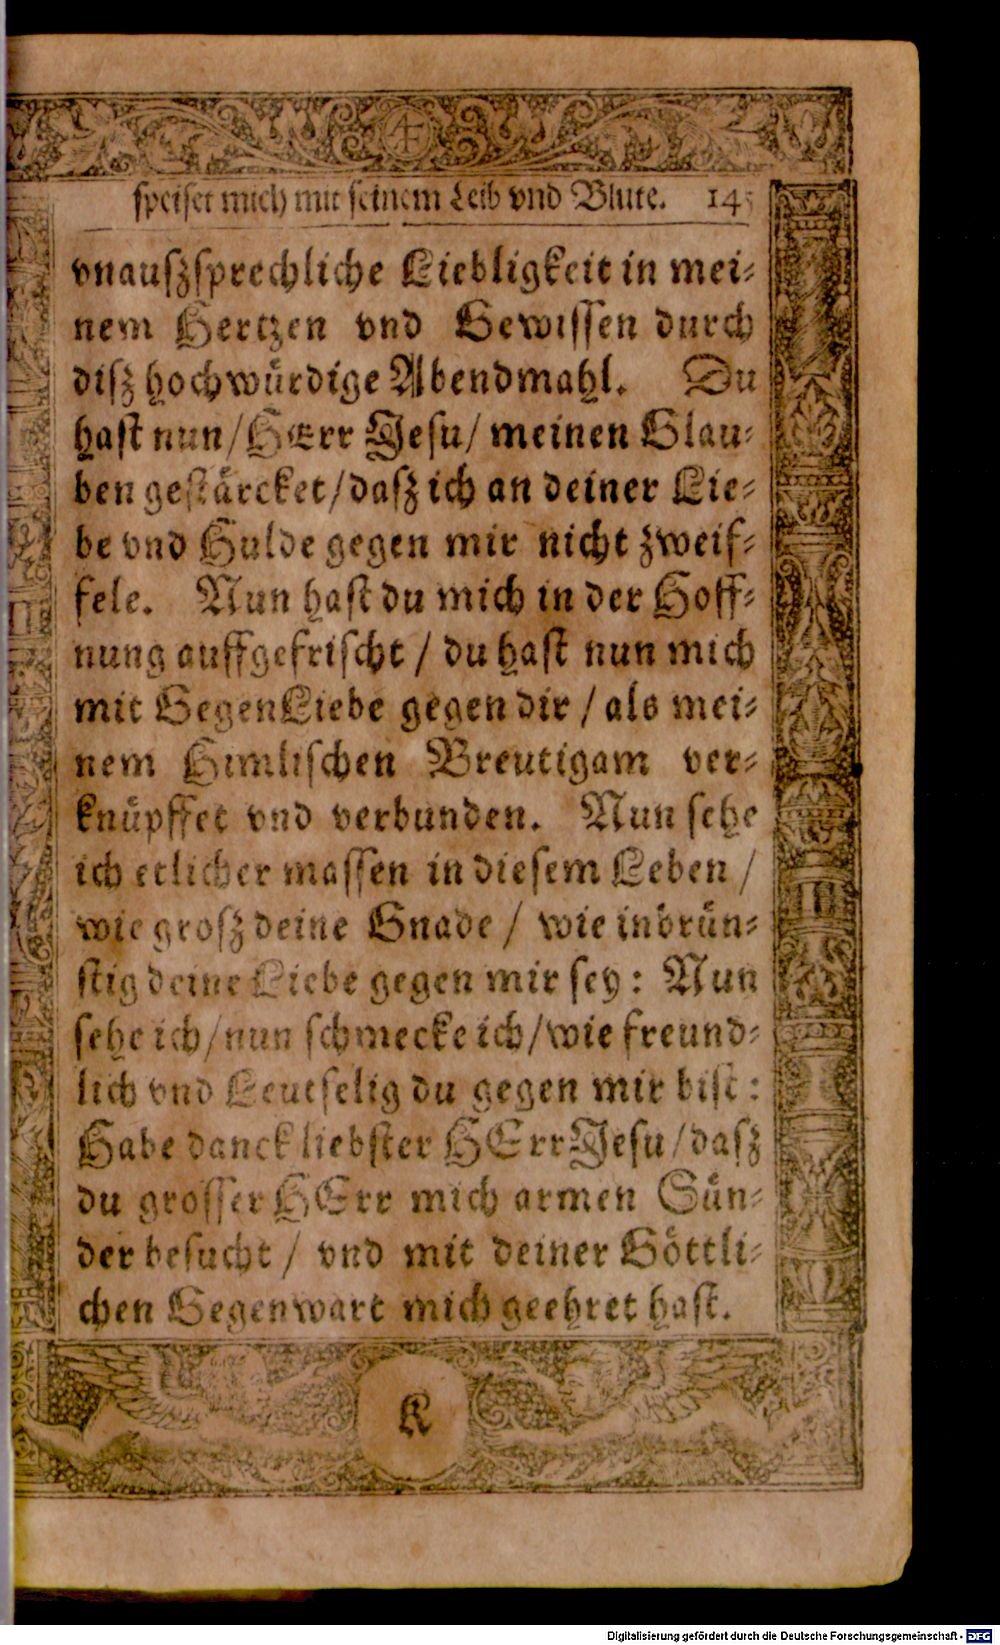 speiset mich mit seinem Leib vnd Blute. 145
vnauszsprechliche Liebligkeit in mei-
nem Hertzen vnd Gewissen durch
disz hochwürdige Abendmahl. Du
hast nun/ HErr Jesu/ meinen Glau-
ben gestärcket/ dasz ich an deiner Lie-
be vnd Hulde gegen mir nicht zweif-
fele. Nun hast du mich in der Hoff-
nung auffgefrischt / du hast nun mich
mit GegenLiebe gegen dir / als mei-
nem Himlischen Breutigam ver-
knüpffet vnd verbunden. Nun sehe
ich etlicher massen in diesem Leben /
wie grosz deine Gnade / wie inbrün-
stig deine Liebe gegen mir sey: Nun
sehe ich/ nun schmecke ich/ wie freund-
lich vnd Leutselig du gegen mir bist:
Habe danck liebster HErr Jesu/ dasz
du grosser HErr mich armen Sün-
der besucht / vnd mit deiner Göttli-
chen Gegenwart mich geehret hast.
K
Digitalisierung gefördert durch die Deutsche Forschungsgemeinschaft - DFG